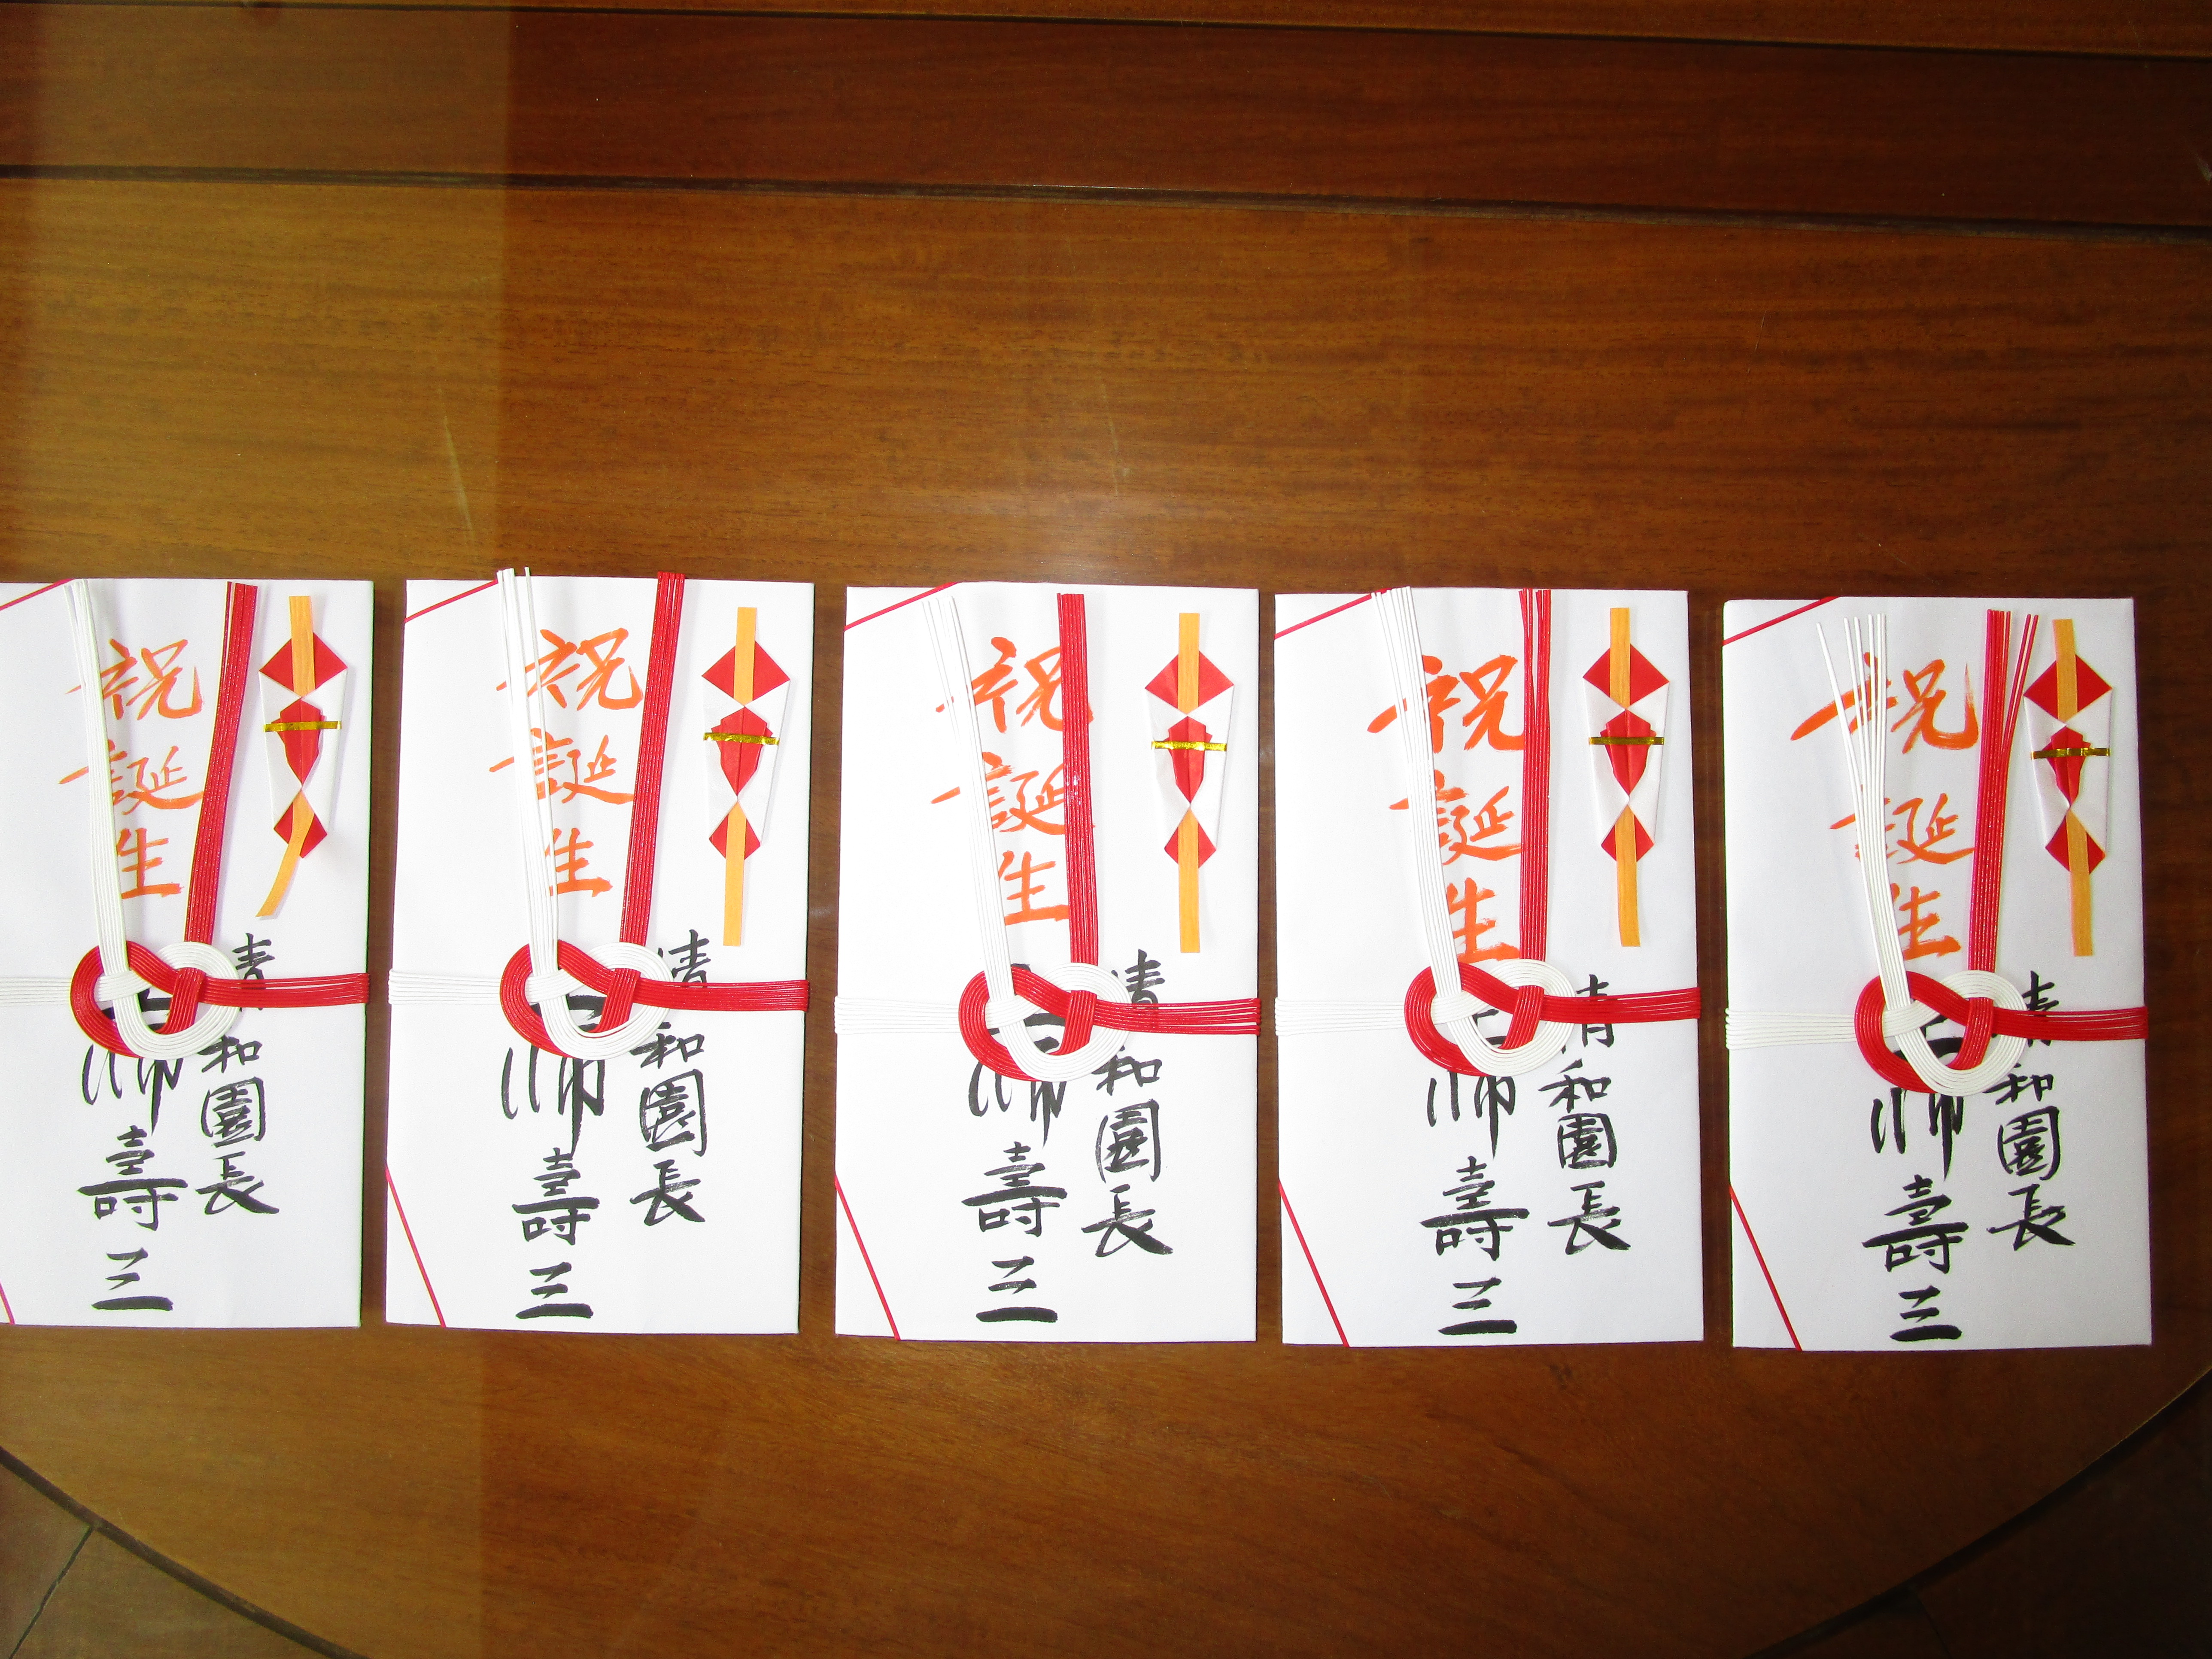 祝誕生
清和園長
壽三
祝誕生
清和園長
壽三
祝誕生
清和園長
壽三
祝誕生
清和園長
壽三
祝誕生
清和園長
壽三